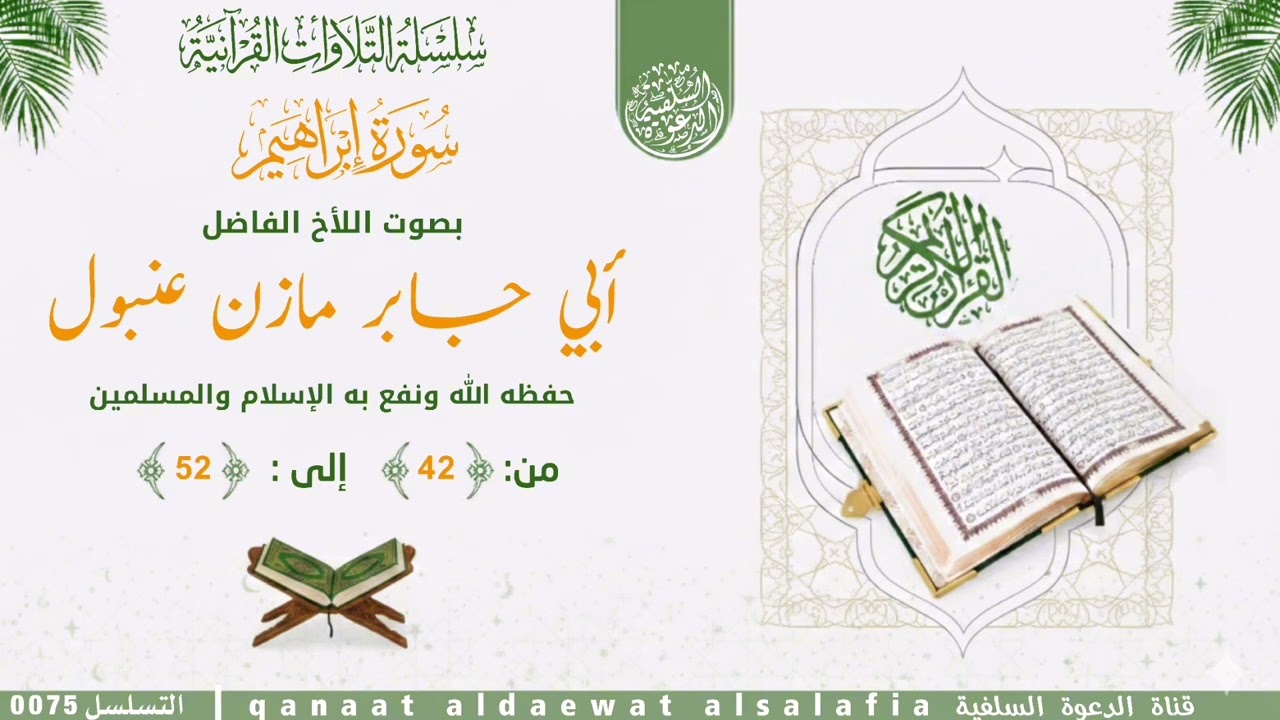 سِلْسَلَةُ التِّلَاوَاتِ القُرْآنِيَّةِ
سُورَةُ إِبْرَاهِيم
بصوت اللأخ الفاضل
أبي جابر مازن عنبول
حفظه الله ونفع به الإسلام والمسلمين
من: ﴿42﴾ إلى : ﴿52﴾
قناة الدعوة السلفية
القرآن الكريم
قناة الدعوة السلفية qanaat aldaewat alsalafia | التسلسل 0075